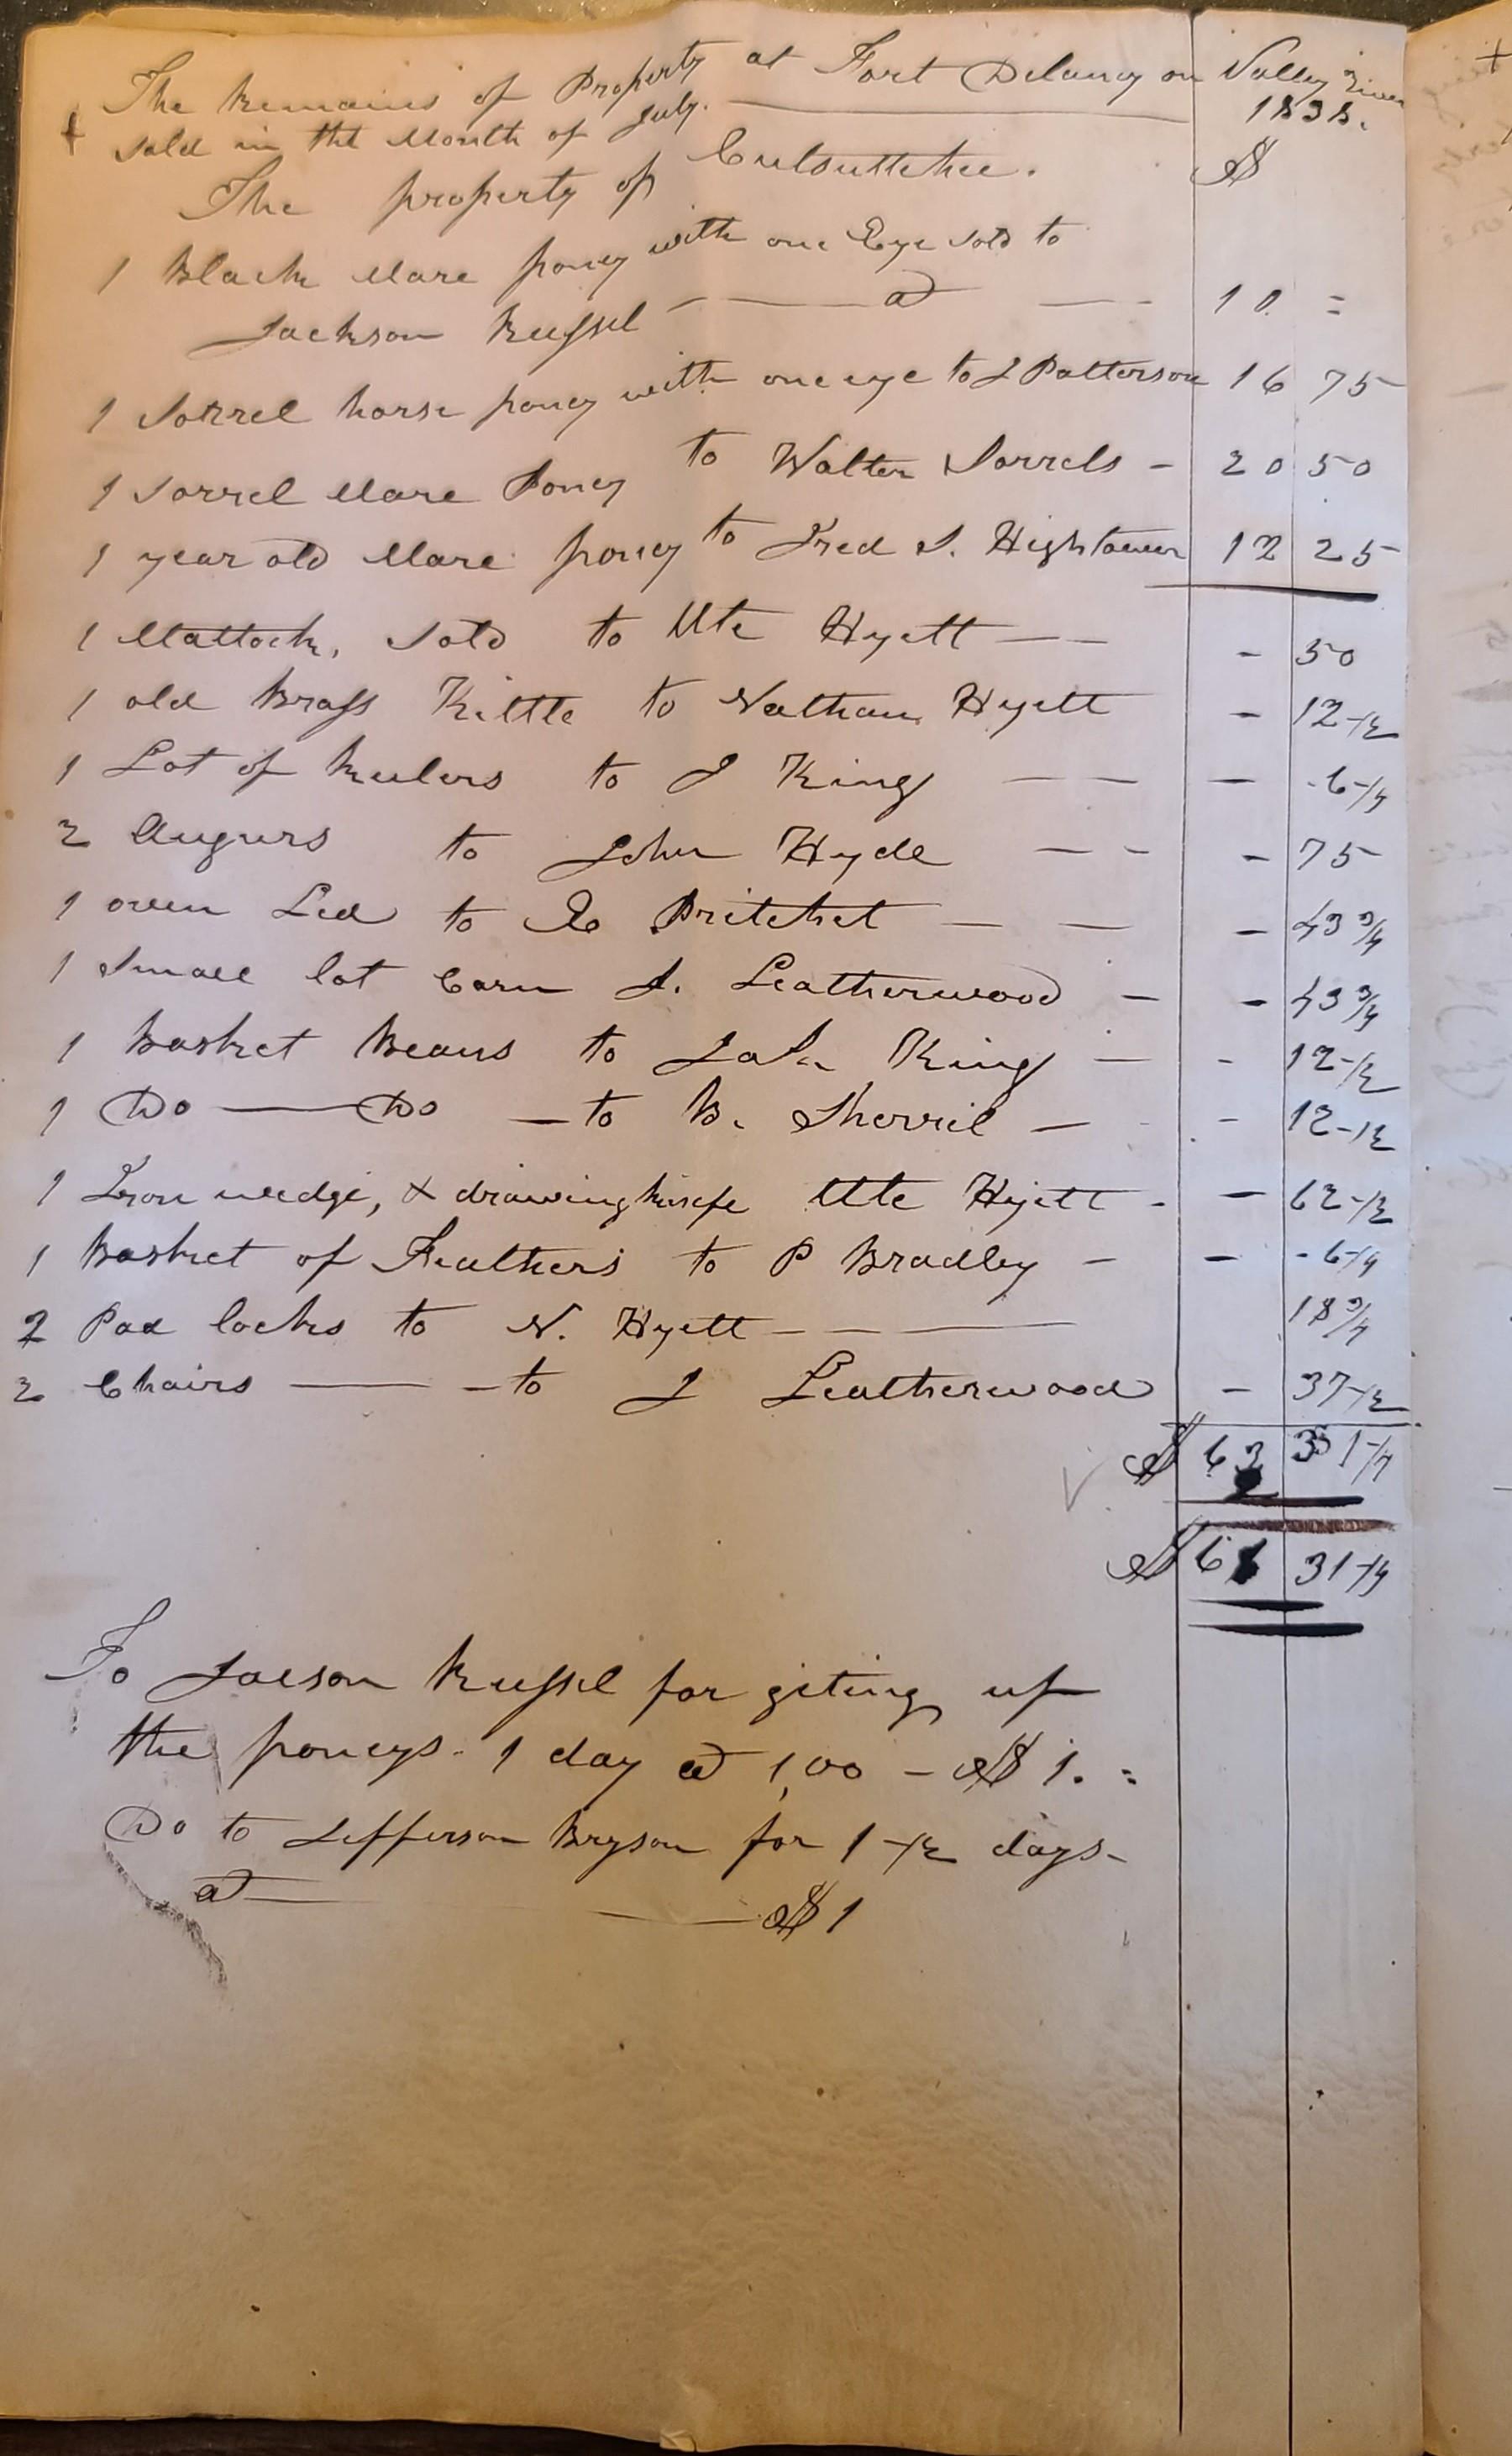 The Remains of Property at Fort Delaney on Valley River
+ sold in the Month of July. — 1838.
The property of Culsuttehee. $
1 Black Mare poney with one Eye sold to
Jackson Russel — @ — 10. =
1 Sorrel horse poney with one eye to J Patterson 16 75
1 Sorrel Mare Poney to Walter Sorrels - 20 50
1 year old Mare poney to Fred S. Hightower 12 25
1 Mattock, sold to Ute Hyett — — - 50
1 old Brass Kittle to Nathan Hyett - 12-1/2
1 Lot of to J King — — - 6-1/4
2 Augurs to John Hyde — - - 75
1 oven Led to Pritchet — — - 43 3/4
1 Small lot Corn J. Leatherwood - - 43 3/4
1 Basket Beans to John King — - 12-1/2
1 Do — Do — to B. Sherril — - 12-1/2
1 Iron wedge, & drawing knife Ute Hyett - - 62-1/2
1 Basket of Feathers to P Bradley - - 6-1/4
2 Pad locks to N. Hyett — — 18 3/4
2 Chairs — - to J Leatherwood - 37-1/2
$ 63 31-1/4
$ 61 31-1/4
To Jacson Russel for giting up
the poneys - 1 day @ 1,00 - $ 1. =
Do to Jefferson Bryson for 1-1/2 days-
@ — — $ 1